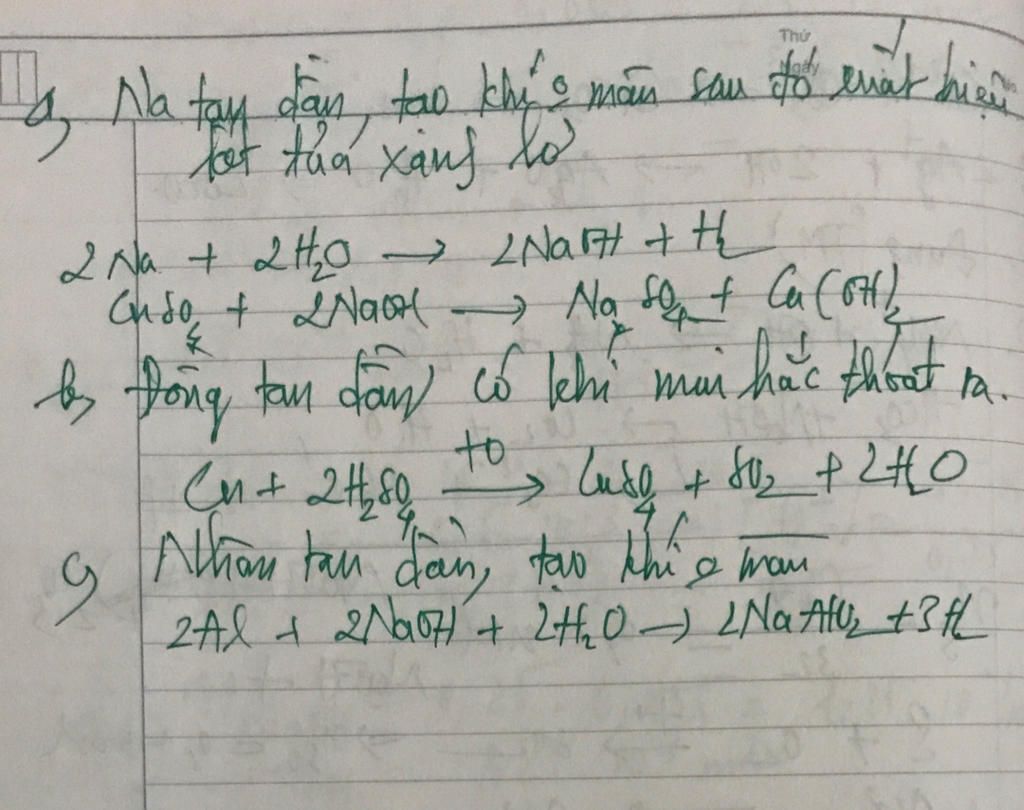 Thứ
Ngày
a, Na tan dần, tạo khí o màu sau đó xuất hiện
kết tủa xanh lơ
2Na + 2H₂O → 2NaOH + H₂
CuSO₄ + 2NaOH → Na₂SO₄ + Cu(OH)₂
b, Đồng tan dần, có khí mùi hắc thoát ra.
Cu + 2H₂SO₄ →(t⁰) CuSO₄ + SO₂ + 2H₂O
c, Nhôm tan dần, tạo khí o màu
2Al + 2NaOH + 2H₂O → 2NaAlO₂ + 3H₂